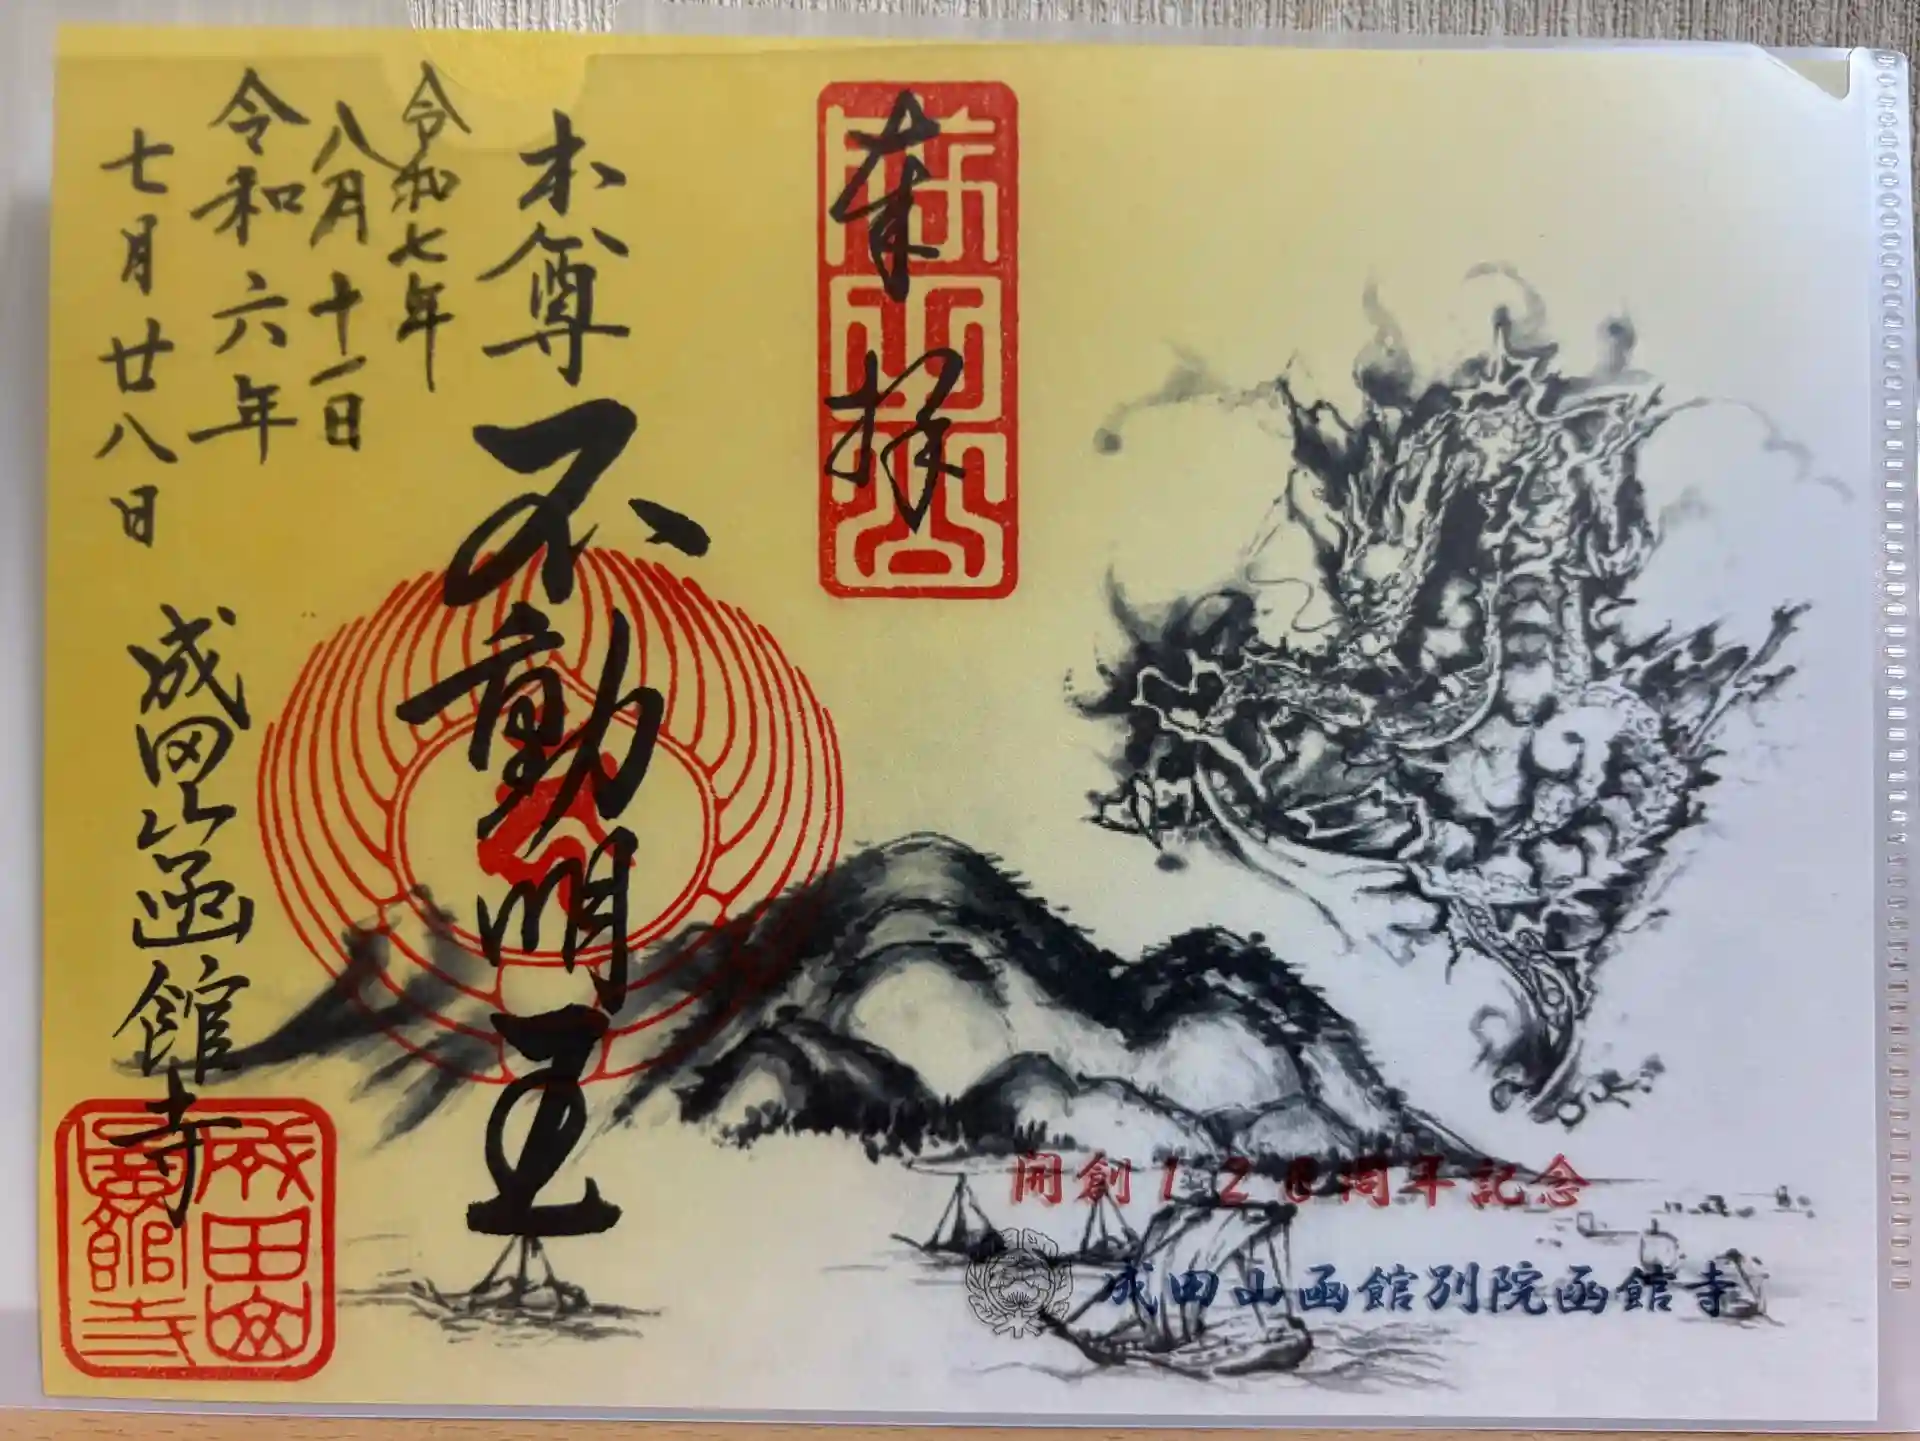 奉拝
本尊
不動明王
令和七年
八月十一日
令和六年
七月廿八日
成田山函館寺
開創128周年記念
成田山函館別院函館寺